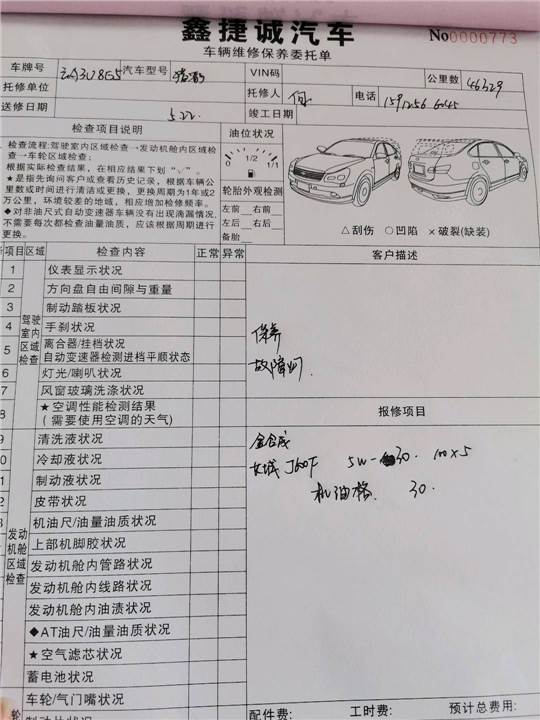 鑫捷诚汽车
车辆维修保养委托单
No0000773
车牌号 汽车型号 VIN码 公里数 46329
托修单位 托修人 电话
送修日期 5.22. 竣工日期
检查项目说明
检查流程:驾驶室内区域检查→发动机舱内区域检
查→车轮区域检查;
根据实际检查结果,在相应结果下划"√"。
★是指先询问客户或查看历史记录,根据车辆公
里数或时间进行清洁或更换,更换周期为1年或2
万公里,环境较差的地域,相应增加检修频率。
◆对非油尺式自动变速器车辆没有出现滴漏情况,
不需要每次都检查油量油质,应该根据周期进行
更换。
油位状况
0 1/2 1/1
轮胎外观检测
左前 右前
左后 右后
备胎
△刮伤 ○凹陷 ×破裂(缺装)
项目 区域 检查内容 正常 异常 客户描述
驾驶室内区域检查
1 仪表显示状况
2 方向盘自由间隙与重量
3 制动踏板状况
4 手刹状况
5 离合器/挂档状况
自动变速器检测进档平顺状态
6 灯光/喇叭状况
7 风窗玻璃洗涤状况
8 ★空调性能检测结果
(需要使用空调的天气)
保养
故障灯
报修项目
全合成
J600F 5W-30. 100×5
机油格 30.
发动机舱区域检查
9 清洗液状况
0 冷却液状况
1 制动液状况
2 皮带状况
机油尺/油量油质状况
上部机脚胶状况
发动机舱内管路状况
发动机舱内线路状况
发动机舱内油渍状况
◆AT油尺/油量油质状况
★空气滤芯状况
蓄电池状况
车轮/气门嘴状况
配件费: 工时费: 预计总费用: